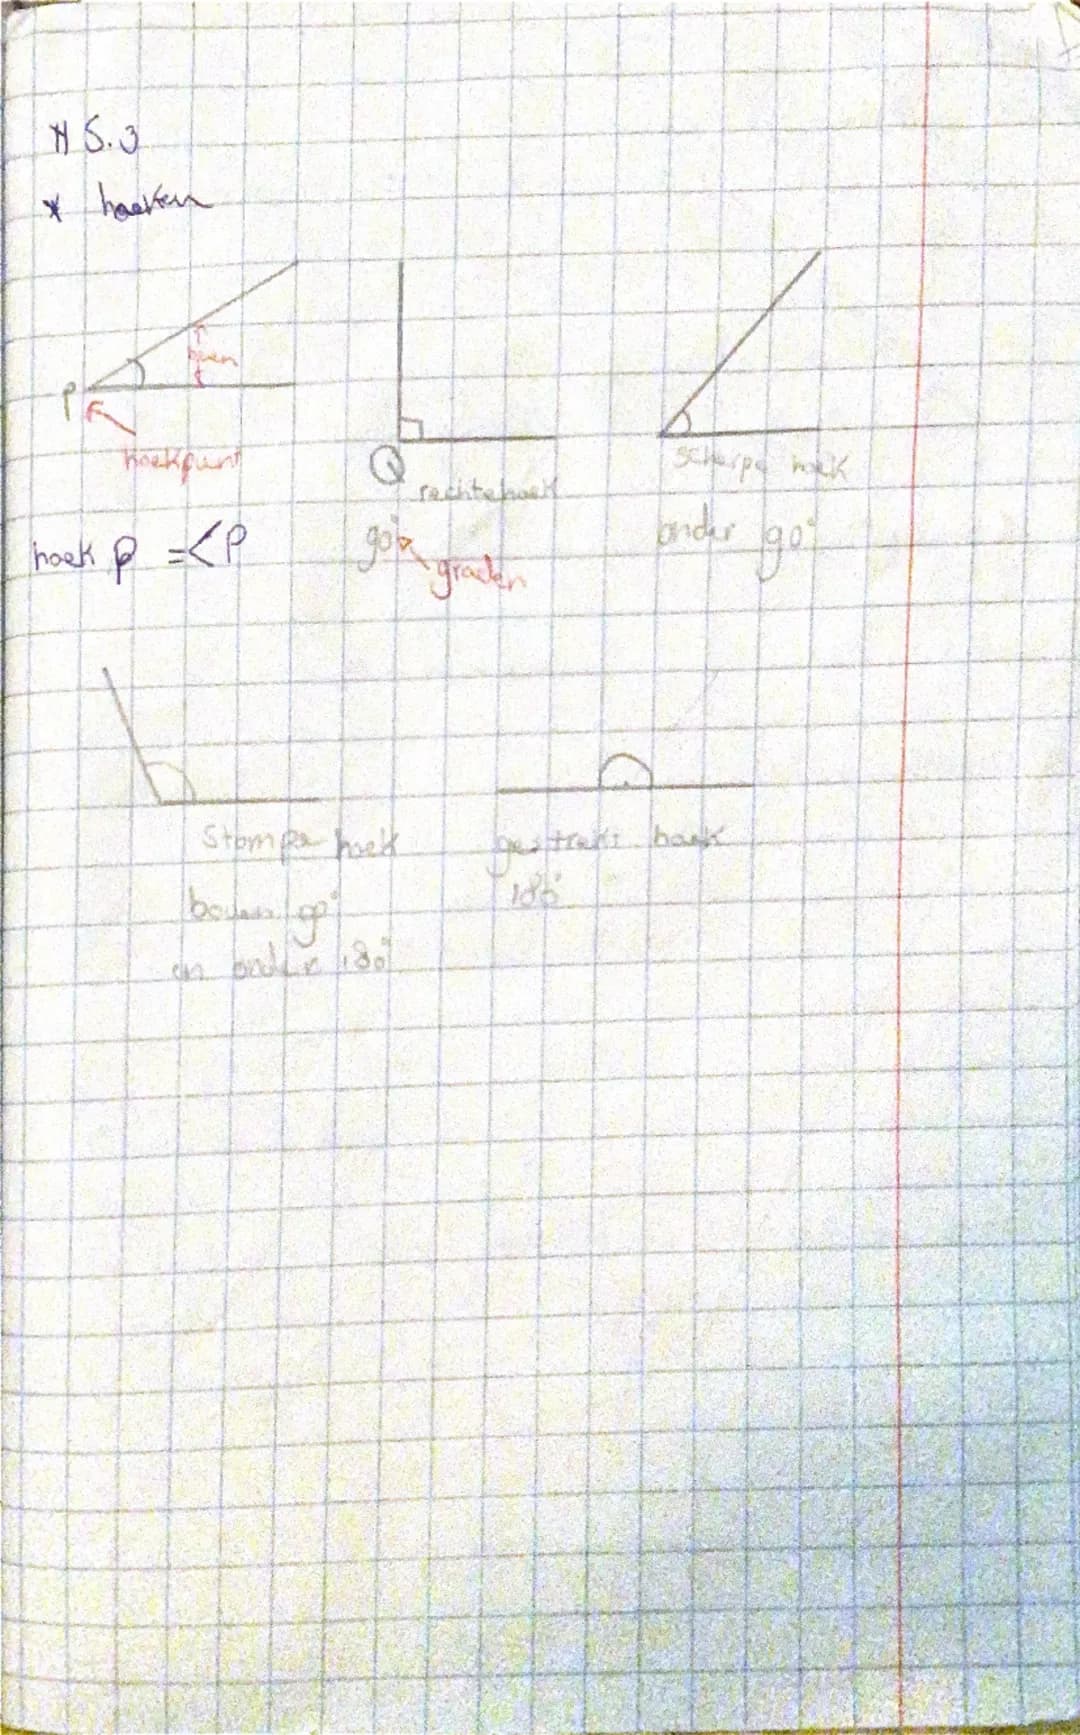 H 5.3
* hoeken
benen
P
hoekpunt
Q
rechtehoek
scherpe hoek
hoek P = <P
90°
graden
onder 90°
Stompe hoek
boven 90°
en onder 180°
gestrekt hoek
180°